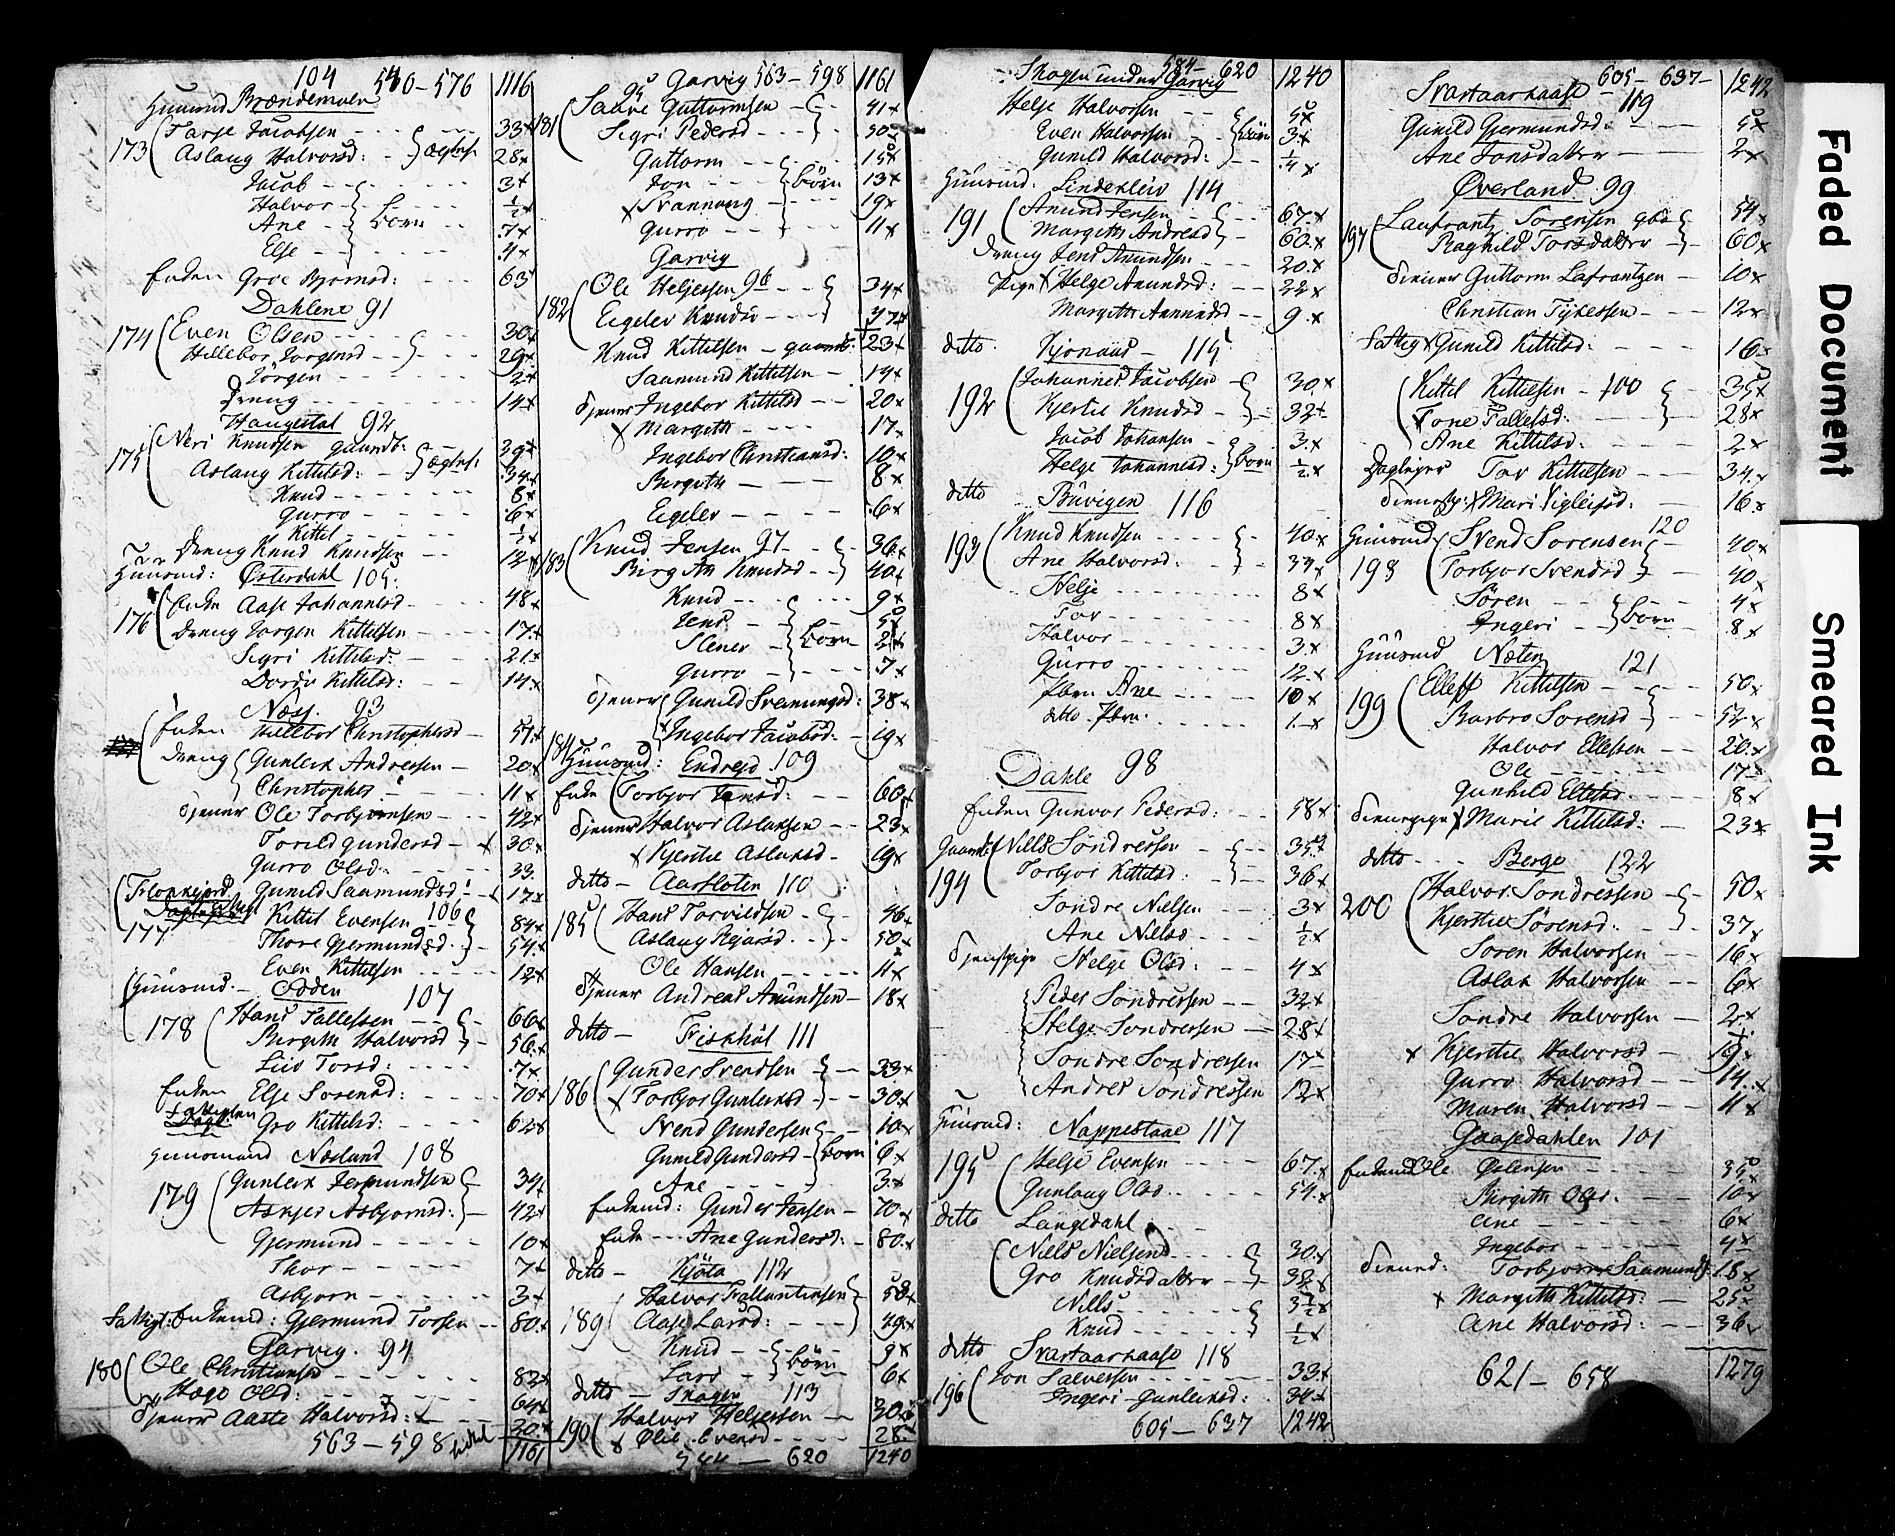 104 540-576 1116
Huusmd Brændemoen
173 Tarje Jacobsen 33x
Aslaug Halvorsd: 28x
Jacob 3x
Halvor ½x
Ane børn 7x
Else 4x
Enken Groe Bjornsd: 63
Dahlene 91
174 Even Olsen 30x
Hillebor Jorgensd 29x
Jörgen 2x
Dreng 14x
Haugestal 92
175 Neri Knudsen gaardb: 39x
Aslaug Kittilsd: 34x
Knud 8x
Gurro 6x
Kittel ½x
Dreng Knud Knudsen 12x
Huusmd: Østerdahl 105.
176 Enken Aase Johannesd 48x
Dreng Jorgen Kittilsen 17x
Sigri Kittilsd: 21x
Dordi Kittilsd: 14x
Næss. 93
Enken Hillebor Christophersd 54x
Dreng Gunleik Andresen 20x
Christopher 11x
tjener Ole Torbjornsen 42x
Torild Gundersd 30x
Gurro Olsd 33
Gunild Saamundsd: 17x
177 Kittil Evensen 106 84x
Thore Gjermundsd. 54x
Even Kittilsen 12x
Huusmd. Odden 107
178 Hans Tallefsen 66x
Birgith Halvorsd 56x
Liv Torsd: 7x
Enken Else Sorensd: 70x
Gro Kittilsd: 62x
Huusmand Næslund 108
179 Gunleik Jermundsen 34x
Askjer Asbjornsd: 42x
Gjermund 10x
Thor 7x
Asbjorn 3x
Fattigt: Enkemd: Gjermund Torsen 80x
Garvig. 94
180 Ole Christiansen 82x
Hæge Olsd: 64x
tjener Aaste Halvorsd: 30x
563-598 1161
Garvig 563-598 1161
95
181 Saave Guttormsen 41x
Sigri Pedersd 50x
Guttorm 15x
Jon børn 13x
x Svannaug 19x
Gurro 11x
Garvig
182 Ole Heljessen 96 34x
Eigelev Knudsd 47x
Knud Kittilsen 23x
Saamund Kittilsen 14x
tjener Ingebor Kittilsd 20x
x Margith 17x
Ingebor Christiansd: 10x
Birgith 8x
Eigelev 6x
183 Knud Jensen 97 36x
Birgith Knudsd 40x
Knud 9x
Jens 5x
Stener børn 2x
Gurro 7x
tjener Gunild Svenungsd: 38x
Ingebor Jacobsd: 19x
184 Huusmd: Endresd 109
Enke Torbjor Jensd: 60x
tjener Halvor Aslaksen 23x
x Kjerstie Aslaksd 19x
ditto Aarsloten 110
185 Hans Torvildsen 46x
Aslaug Rejarsd 50x
Ole Hansen 11x
tjener Andreas Amundsen 18x
ditto Friskhül 111
186 Gunder Svendsen 33x
x Torbjor Gunleiksd 30x
Svend Gundersen 10x
Gunild Gundersd børn 6x
Ane 3x
Enkemd: Gunder Jensen 70x
Enke Ane Gundersd: 80x
ditto Kjöta 112
189 Halvor Fallentinsen 50x
Aase Larsd: 49x
Knud 9x
Lars børn 6x
ditto Skogen 113
190 Halvor Heljessen 30x
x Ølie Evensd 28x
584 — 620 1240
Skogen under Garvig 584-620 1240
Helje Halvorsen 5x
Even Halvorsen børn 3x
Gunild Halvorsd: ¼x
Huusmd: Lindekleiv 114
191 Amund Jensen 67x
Margith Andresd 60x
Dreng Jens Amundsen 20x
Pige x Helge Amundsd: 22x
Margith Amundsd 9x
ditto Kjonaas 115
192 Johannes Jacobsen 30x
Kjersti Knudsd 32x
Jacob Johansen 3x
Helge Johannesd: børn ½x
ditto Büvigen 116
193 Knud Knudsen 40x
Ane Halvorsd: 37x
Helje 8x
Tor 8x
Halvor 3x
Gurro 12x
Jbm Ane 10x
ditto Jbm. 1x
Dahle 98
Enken Gunvor Pedersd: 58x
194 Nills Sondressen 35x
Torbjor Kittilsd: 36x
Sondre Nielsen 3x
Ane Nilsd ½x
Tjenstpige Helge Olsd: 4x
Peder Sondressen 32x
Helge Sondressen 28x
Sondre Sondressen 17
Andres Sondressen 12x
Huusmd: Nappestaae 117
195 Helje Evensen 67x
Gunlaug Olsd 54x
ditto Langedahl
Niels Nielsen 30x
Gro Knudsdatter 32x
Nills 3½x
Knud ½x
ditto Svartaarhaase 118
196 Jon Salvessen 33x
Ingeri Gunleiksd: 34x
605 — 637 1242
605 — 637 1242
Svartaarhaase 119
Gunild Gjermundsd: 5x
Ane Jonsdatter 2x
Øverland 99
197 Laufrantz Sorensen gbr 54x
Ragnild Torsdatter 60x
Tiener Guttorm Lafrantzen 10x
Christian Tykessen 12x
Fattig x Gunild Kittilsd: 16x
Kittil Kittilsen 100 35x
Tone Tallefsd: 28x
Ane Kittilsd: 2x
Daglejer Tor Kittilsen 34x
tienestp: x Mari Vigleifsd: 16x
Huusmd Svend Sorensen 120 40x
198 Torbjor Svendsd 40x
Sören 4x
Ingeri børn 8x
Huusmd Næten 121
199 Ellef Kittilsen 50x
Barbro Sorensd 52x
Halvor Ellefsen 20x
Ole 17
Gunhild Ellefsd 8x
Tienestpige x Marie Kittilsd: 23x
ditto Berge 122
200 Halvor Sondressen 50x
Kjerstie Sørensd: 37x
Soren Halvorsen 16x
Aslak Halvorsen 6x
Sondre Halvorsen 2x
x Kjerstie Halvorsd 19x
Gurro Halvorsd 14x
Maren Halvorsd 11x
Gaasedahlen 101
Enkemd Ole Ørlensen 35x
Birgith Olsd. 10x
Ane 6x
Ingebor 4x
Tienend: Torbjorn Saamunds: 18x
x Margith Kittilsd: 25x
Ane Halvorsd: 36x
621 — 658 1279
Faded Document
Smeared Ink